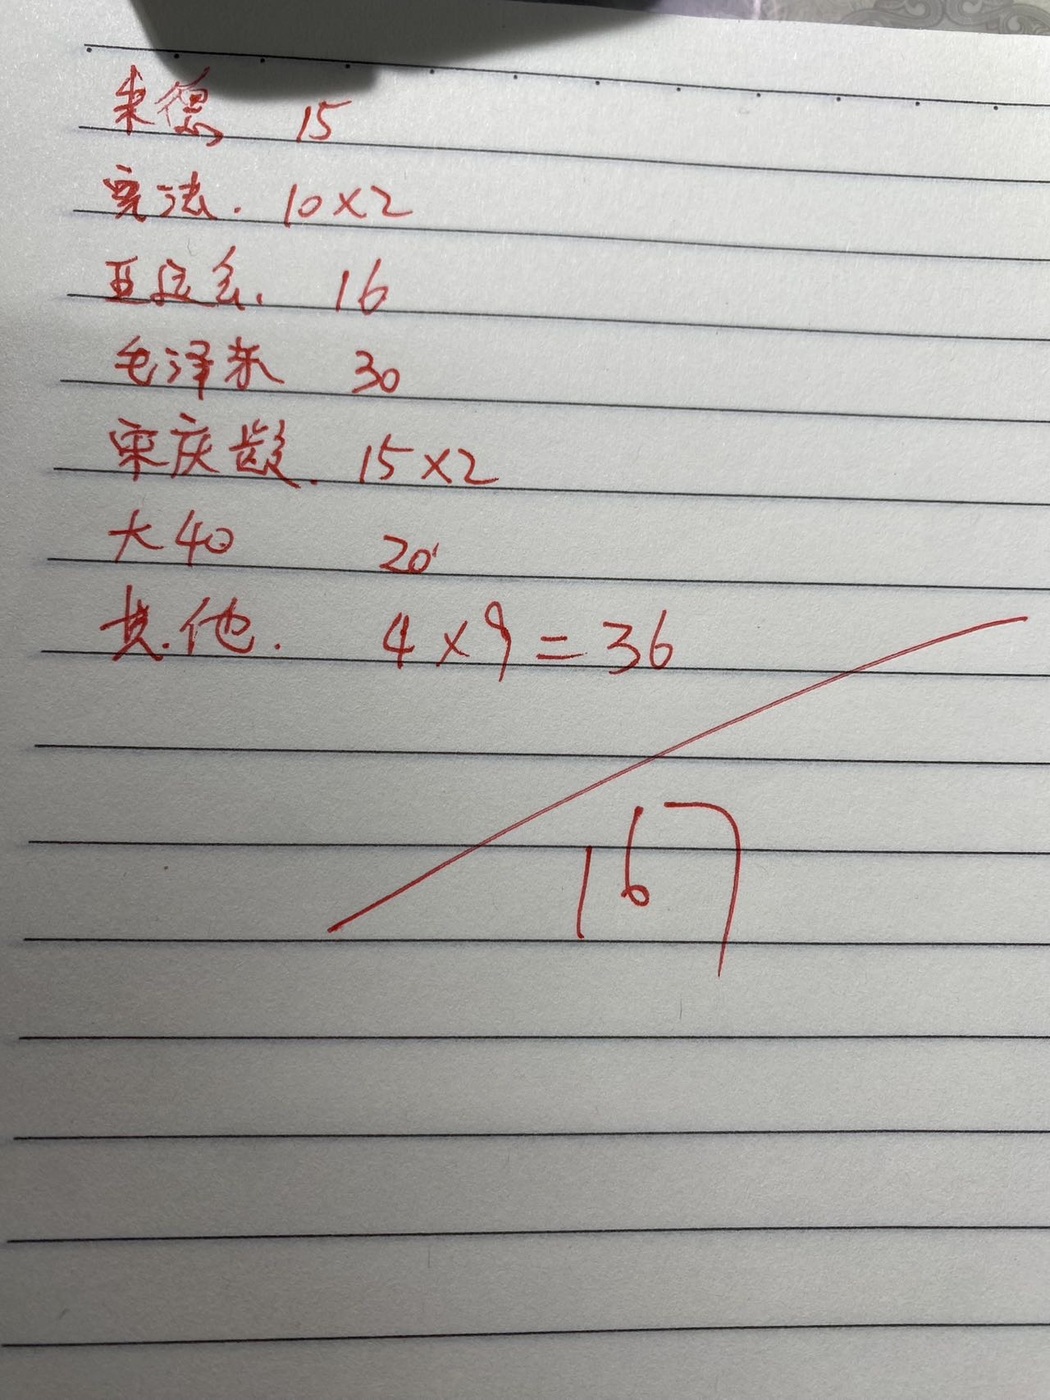 朱德 15
宪法. 10×2
亚运会. 16
毛泽东 30
宋庆龄. 15×2
大40 20
其.他. 4×9=36
167